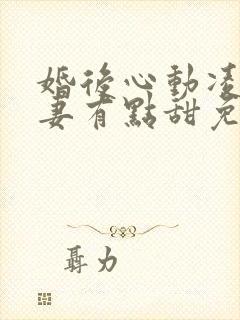 婚後心動凌
妻有點甜免
聶力